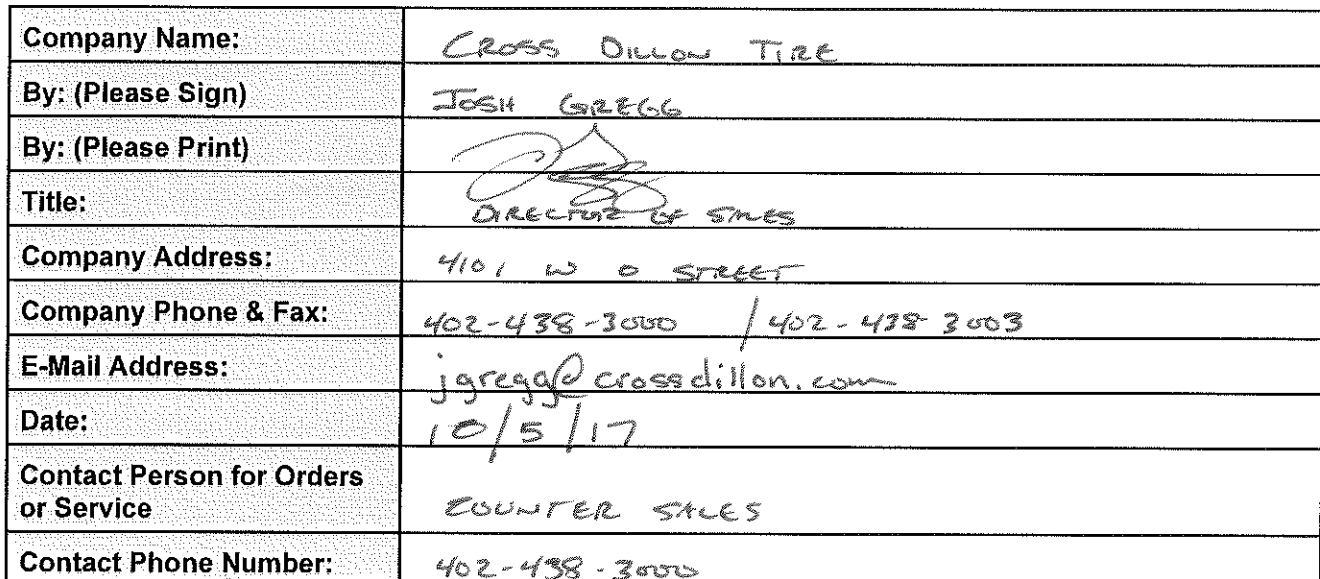 Company Name: CROSS DILLON TIRE
By: (Please Sign) JOSH GREGG
By: (Please Print)
Title: DIRECTOR OF SALES
Company Address: 4101 W O STREET
Company Phone & Fax: 402-438-3000 / 402-438-3003
E-Mail Address: jgregg@crossdillon.com
Date: 10/5/17
Contact Person for Orders
or Service COUNTER SALES
Contact Phone Number: 402-438-3000